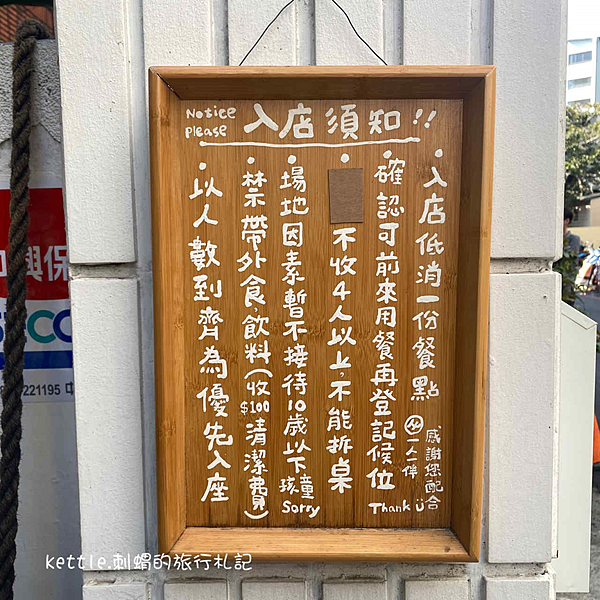 Notice
please
入店須知!!
・入店低消一份餐點
㊟一人一份
感謝您配合
・確認可前來用餐再登記候位
Thank ü
・不收4人以上,不能拆桌
・場地因素暫不接待10歲以下孩童
Sorry
・禁帶外食,飲料(收$100清潔費)
・以人數到齊為優先入座
興保
ECO
221195
kettle.刺蝟的旅行札記